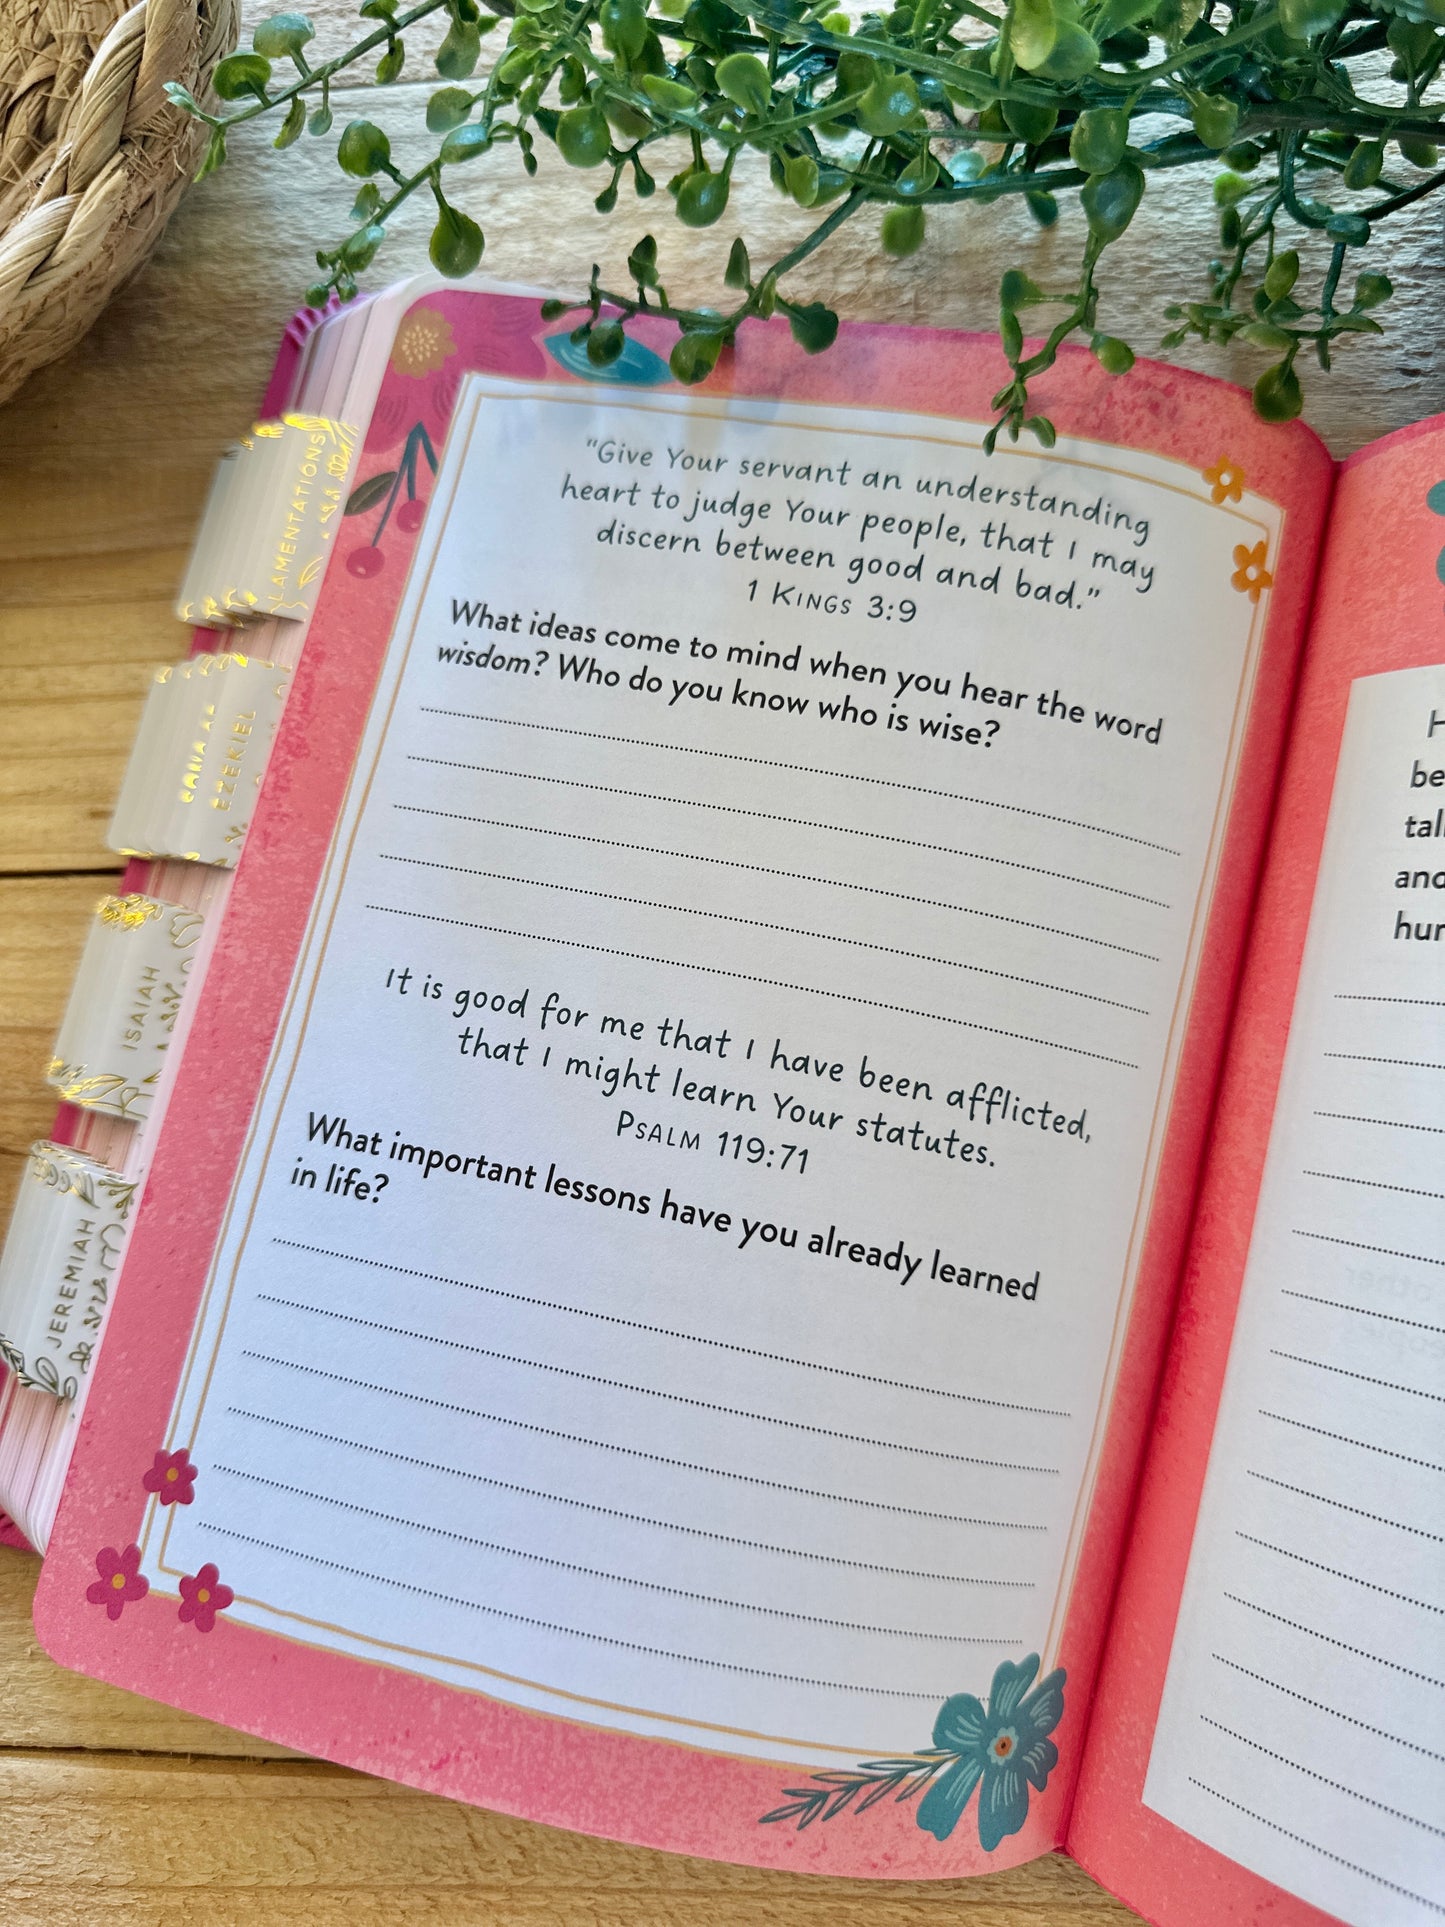 "Give Your servant an understanding
heart to judge Your people, that I may
discern between good and bad."
1 KINGS 3:9
What ideas come to mind when you hear the word
wisdom? Who do you know who is wise?
It is good for me that I have been afflicted,
that I might learn Your statutes.
PSALM 119:71
What important lessons have you already learned
in life?
LAMENTATIONS
EZEKIEL
ISAIAH
JEREMIAH
be
and